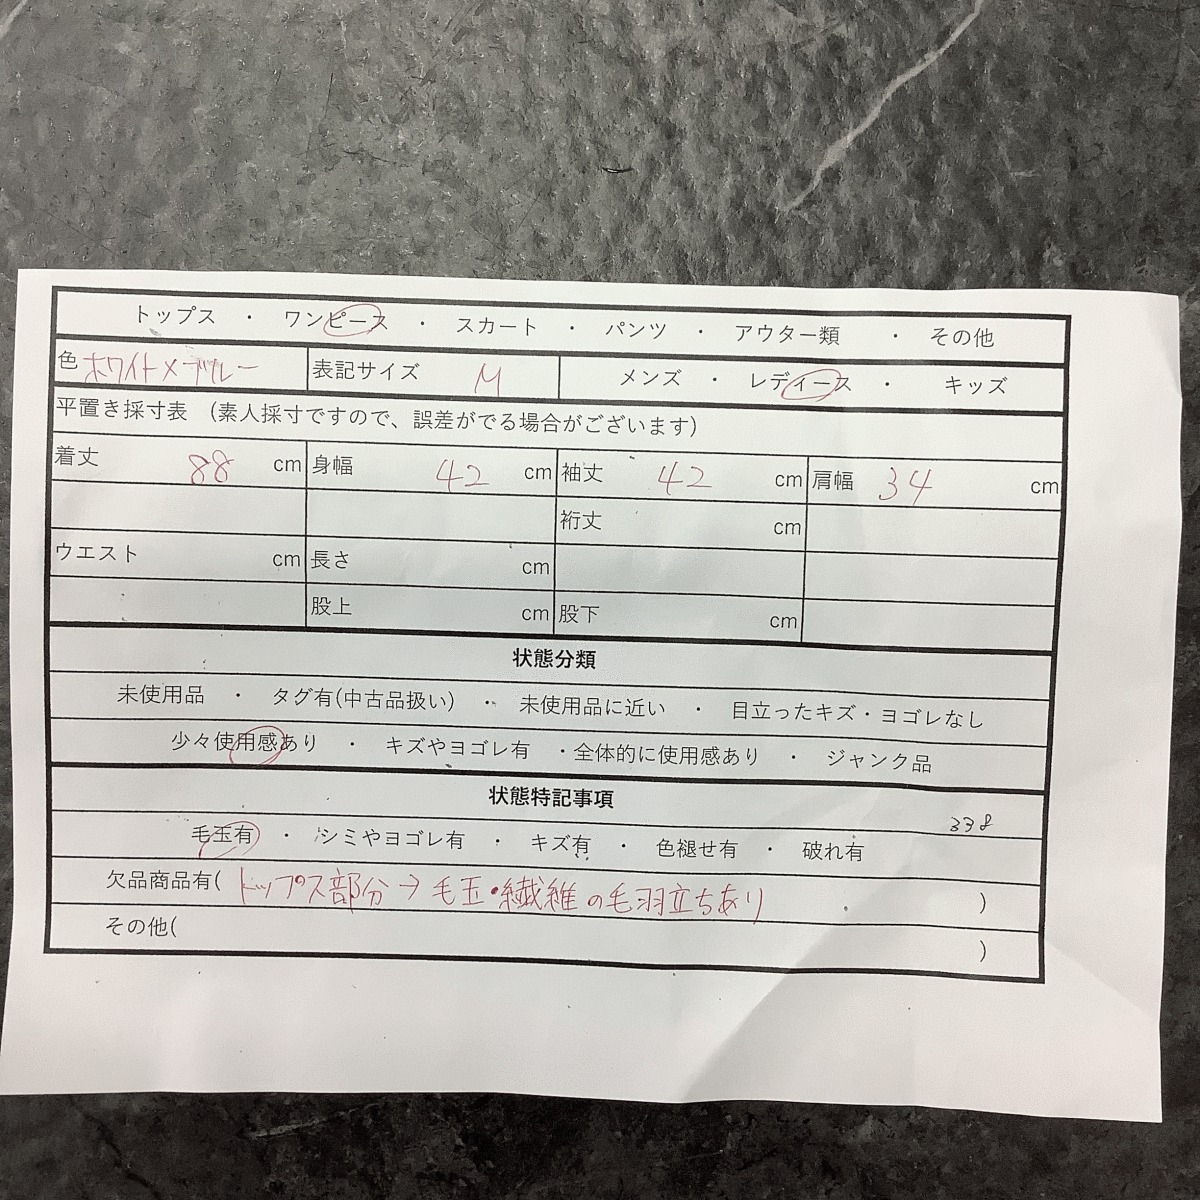 トップス ・ ワンピース ・ スカート ・ パンツ ・ アウター類 ・ その他
色 ホワイト×ブルー 表記サイズ M メンズ ・ レディース ・ キッズ
平置き採寸表 (素人採寸ですので、誤差がでる場合がございます)
着丈 88 cm 身幅 42 cm 袖丈 42 cm 肩幅 34 cm
裄丈 cm
ウエスト cm 長さ cm
股上 cm 股下 cm
状態分類
未使用品 ・ タグ有(中古品扱い) ・ 未使用品に近い ・ 目立ったキズ・ヨゴレなし
少々使用感あり ・ キズやヨゴレ有 ・全体的に使用感あり ・ ジャンク品
状態特記事項
338
毛玉有 ・ シミやヨゴレ有 ・ キズ有 ・ 色褪せ有 ・ 破れ有
欠品商品有( トップス部分→毛玉・繊維の毛羽立ちあり )
その他( )